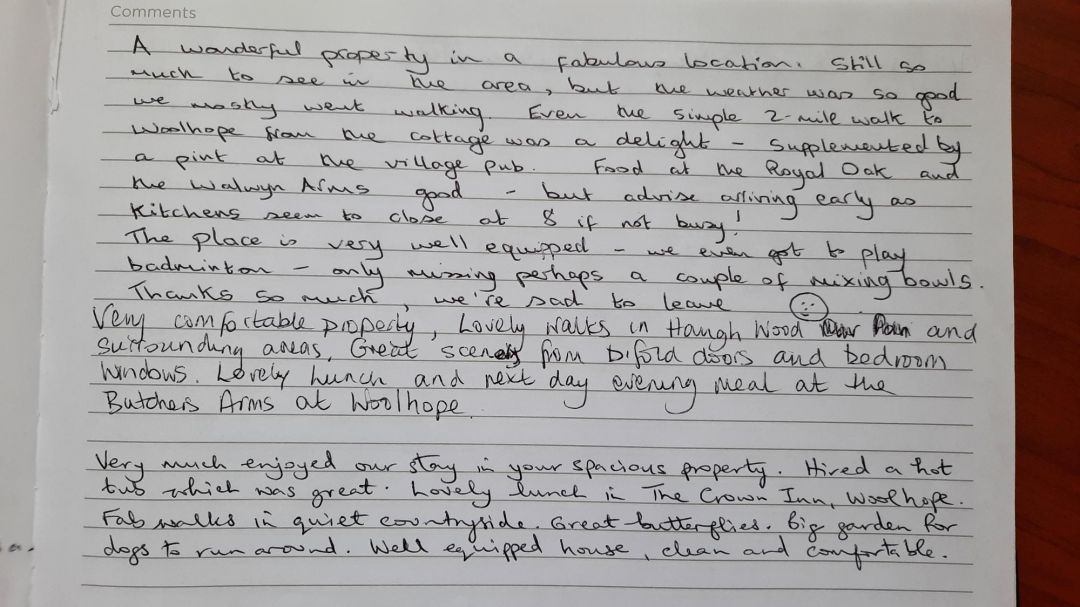 Comments
A wonderful property in a fabulous location. Still so
much to see in the area, but the weather was so good
we mostly went walking. Even the simple 2-mile walk to
Woolhope from the cottage was a delight – supplemented by
a pint at the village pub. Food at the Royal Oak and
the Walwyn Arms good – but advise arriving early as
kitchens seem to close at 8 if not busy!
The place is very well equipped – we even got to play
badminton – only missing perhaps a couple of mixing bowls.
Thanks so much, we're sad to leave
Very comfortable property, Lovely walks in Haugh Wood and
surrounding areas, Great scenery from bifold doors and bedroom
windows. Lovely lunch and next day evening meal at the
Butchers Arms at Woolhope.
Very much enjoyed our stay in your spacious property. Hired a hot
tub which was great. Lovely lunch in The Crown Inn, Woolhope.
Fab walks in quiet countryside. Great butterflies. Big garden for
dogs to run around. Well equipped house, clean and comfortable.